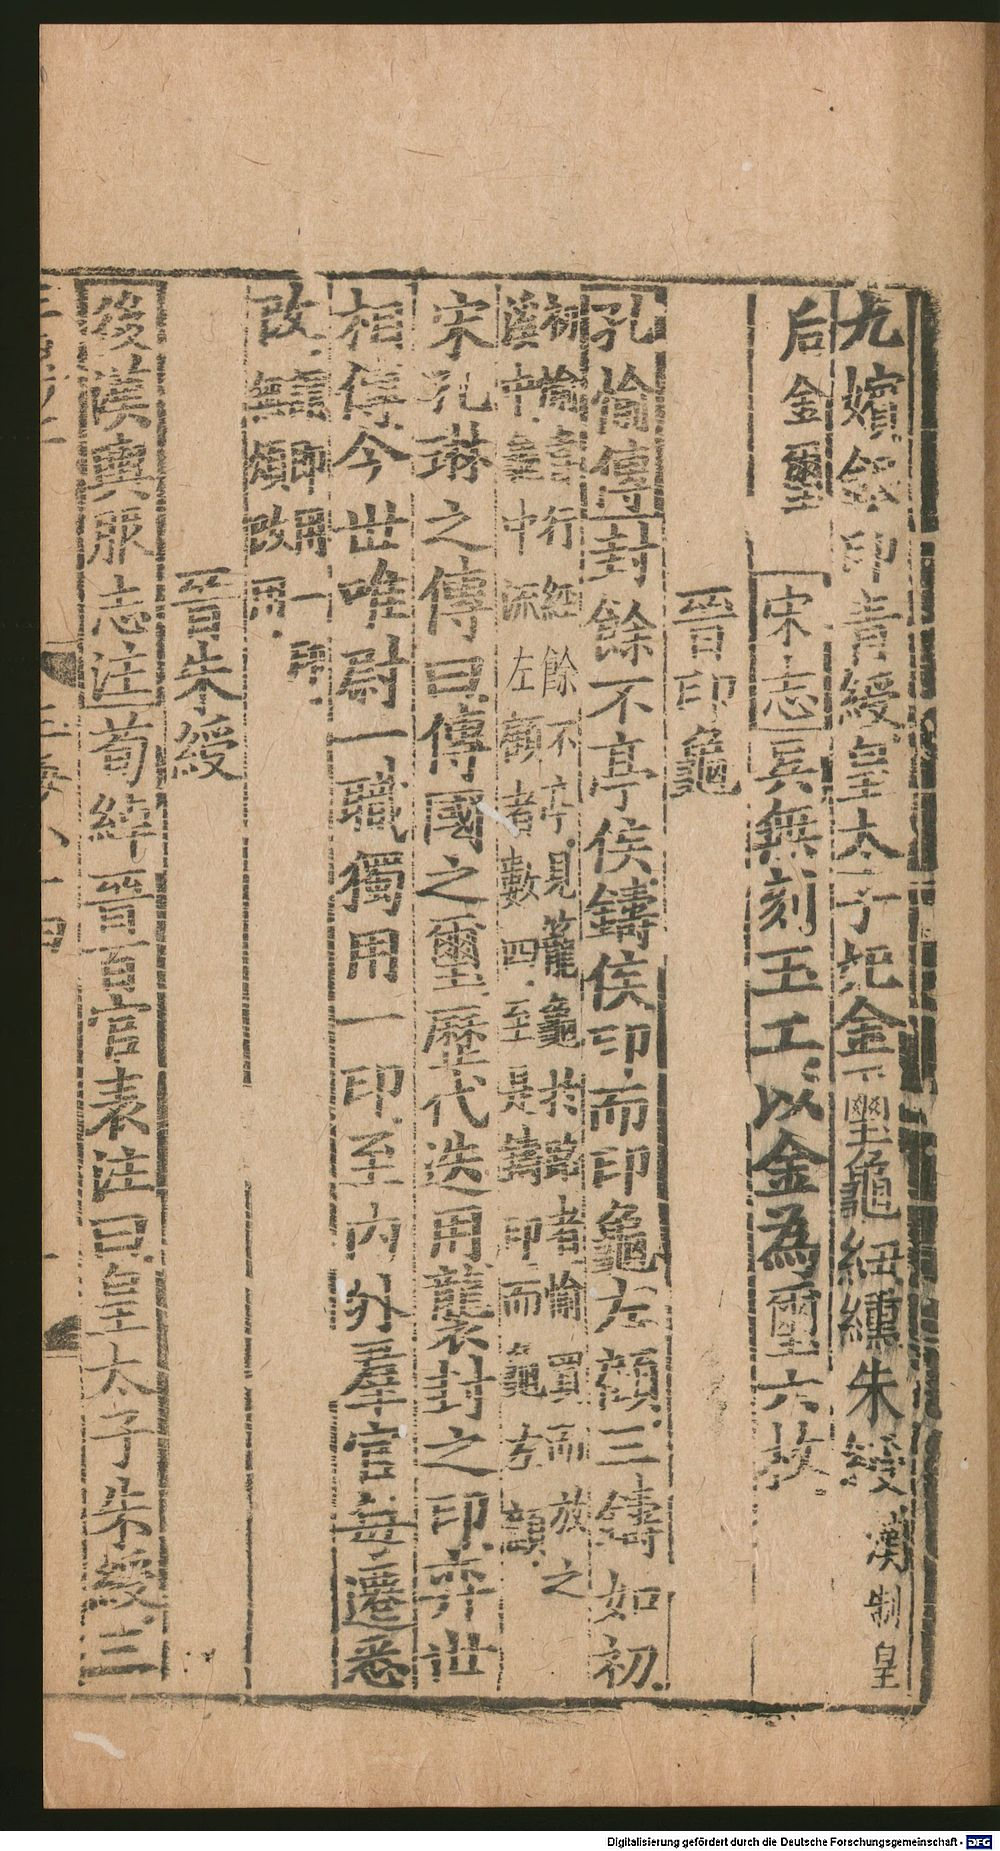 九嬪銀印青綬皇太子妃金璽龜紐纁朱綬漢制皇
后金璽　宋志吳無刻玉工以金為璽六枚
晉印龜
孔愉傳封餘不亭侯鑄侯印而印龜左顧三鑄如初
初愉嘗行經餘不亭見籠龜於路者愉買而放之
溪中龜中流左顧者數四至是鑄印而龜左顧
宋孔琳之傳曰傳國之璽歷代迭用襲封之印弈世
相傳今世唯尉一職獨用一印至內外羣官每遷悉
改即用一印
無煩改用
晉朱綬
後漢輿服志注荀綽晉百官表注曰皇太子朱綬三
Digitalisierung gefördert durch die Deutsche Forschungsgemeinschaft - DFG